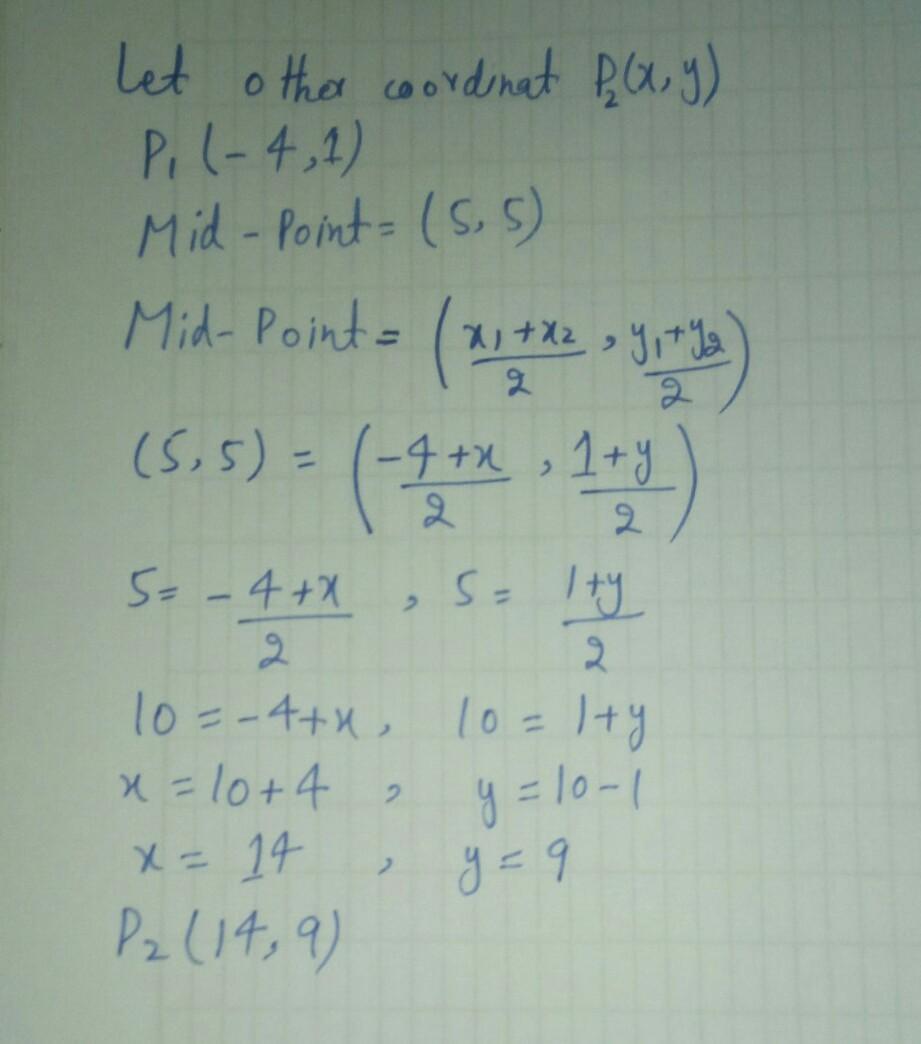 Let other coordinat P₂(x,y)
P₁(-4,1)
Mid-Point = (5,5)
Mid-Point = (x₁+x₂/2, y₁+y₂/2)
(5,5) = (-4+x/2, 1+y/2)
5 = -4+x/2, 5 = 1+y/2
10 = -4+x, 10 = 1+y
x = 10+4, y = 10-1
x = 14, y = 9
P₂(14,9)